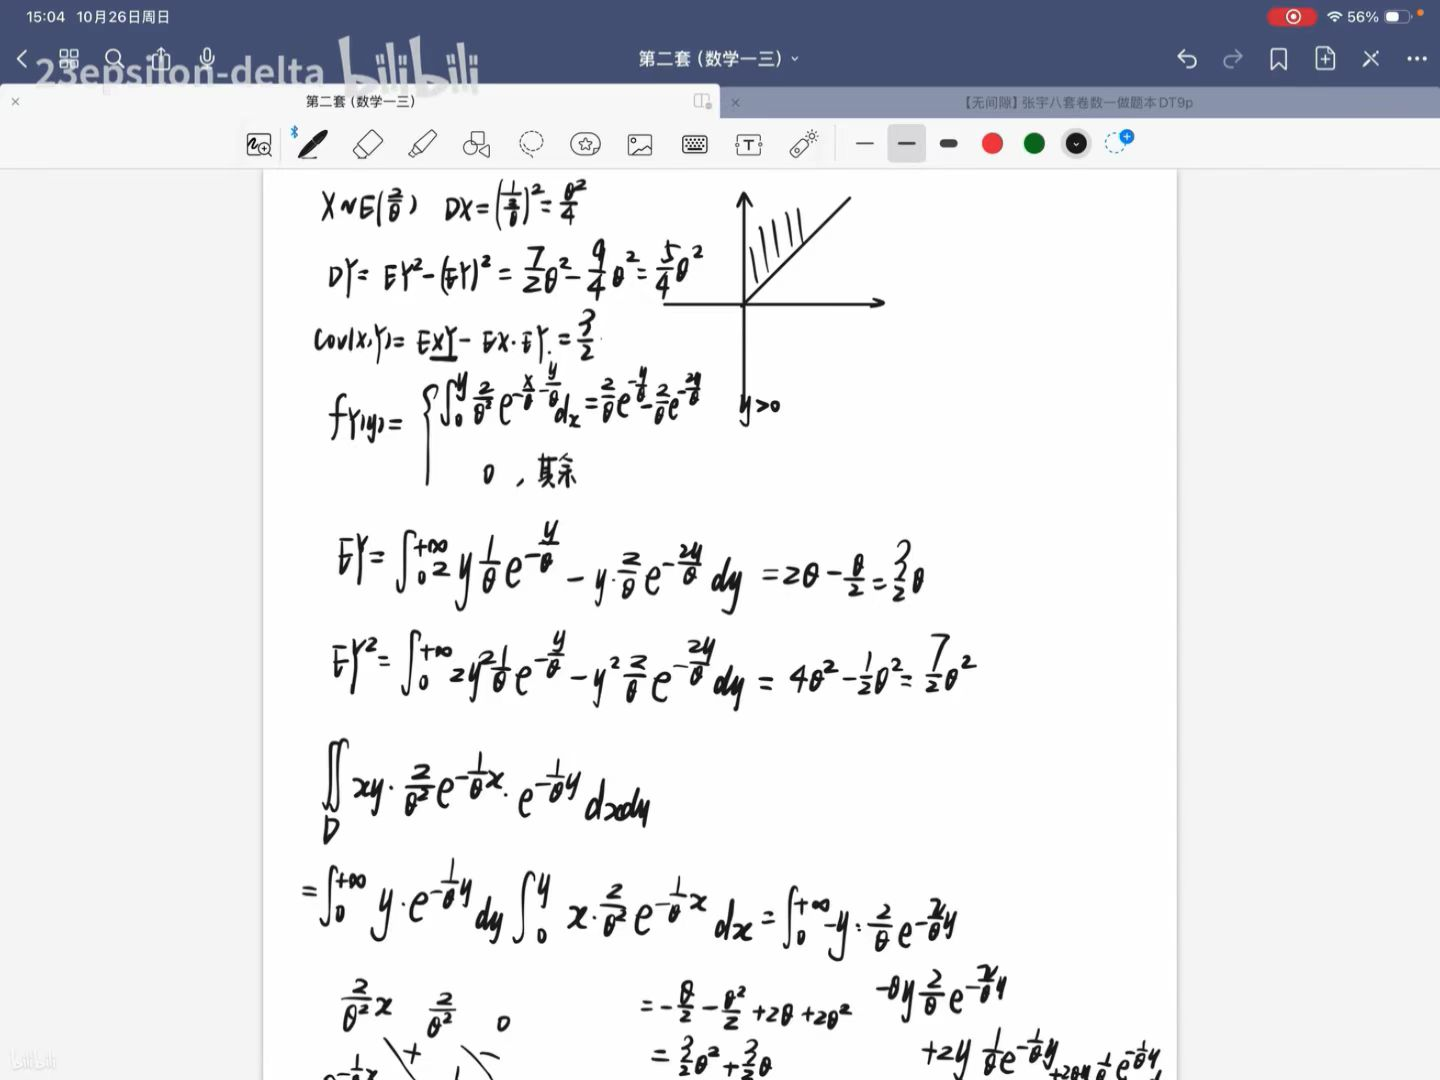 15:04 10月26日周日
56%
23epsilon-delta bilibili
第二套（数学一三）
第二套（数学一三）
【无间隙】张宇八套卷数一做题本DT9p
X~E(2/θ) DX=(1/(2/θ))²=θ²/4
DY=EY²-(EY)²=7/2θ²-9/4θ²=5/4θ²
Cov(X,Y)=EXY-EX·EY=3/2
fY(y)={∫₀^y 2/θ² e^(-x/θ-y/θ)dx=2/θ e^(-y/θ)-2/θ e^(-2y/θ) y>0
0，其余
EY=∫₀^(+∞) 2y 1/θ e^(-y/θ)-y·2/θ e^(-2y/θ)dy=2θ-θ/2=3/2θ
EY²=∫₀^(+∞) 2y² 1/θ e^(-y/θ)-y² 2/θ e^(-2y/θ)dy=4θ²-1/2θ²=7/2θ²
∬_D xy·2/θ² e^(-1/θ x)·e^(-1/θ y)dxdy
=∫₀^(+∞) y·e^(-1/θ y)dy∫₀^y x·2/θ² e^(-1/θ x)dx=∫₀^(+∞) -y·2/θ e^(-2/θ y)
-θy 2/θ e^(-2/θ y)
2/θ² x 2/θ² 0
=-θ/2-θ²/2+2θ+2θ²
+2y 1/θ e^(-1/θ y)+2θy 1/θ e^(-1/θ y)
=3/2θ²+3/2θ
+ -
bilibili